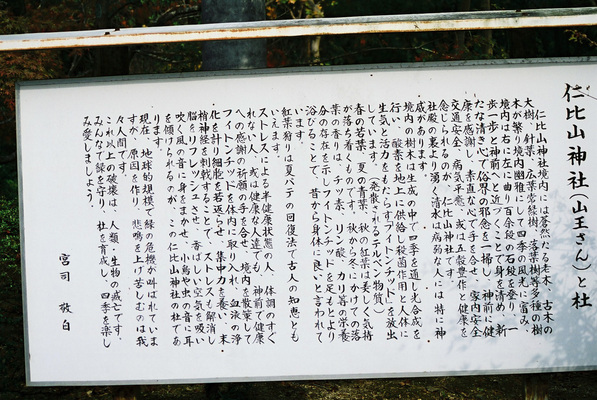 仁比山神社(山王さん)と杜
仁比山神社境内には蒼然たる老木、古木の
大樹、針葉、広葉常緑樹、落葉樹等多種の樹
木が繁り境内幽雅にして四季の風光に富み、
境内は右に左に曲り百余段の石段を登り、一
歩一歩と神前へと近づくことで身を清め、新
たな清き心で俗界の邪念を一掃し、神前に健
康を感謝し、素直な心で手を合せ、家内安全
交通安全、病気平癒、或は五穀豊作と健康を
念じられるのが、仁比山神社です。
社殿の裏より湧く清水は病弱な人には特に神
威があります。
境内の樹木は生成の中で四季を通し光合成を
行い、酸素を地上に供給し殺菌作用と人体に
生気と活力をもたらすフィトンチッドを放出
しています。(発散されるテルペン物質)
春の若葉、夏の青葉、秋の紅葉は美しく気持
が落ち着くものです。秋から冬にかけての落
葉の香りはチッソ素、リン酸、カリ等の栄養
分の存在を示しフィトンチッドを足もとより
浴びることで、昔から身体に良いと言われて
います。
紅葉狩りは夏バテの回復法で古人の知恵とも
いえます。
ストレスによる半健康状態の人、体調のすぐ
れない人、或は健康な人達でも、神前で健康
への感謝の祈願の手を合せ、境内を散策して
フィトンチッドを体内に取り入れ、血液の浄
化を計り細胞を若返らせ、集中力を養い、末
梢神経を刺戟することで、ストレスを解消し
脳をリフレッシュさせ、香り高い空気を吸い
吹く風の音に身をまかせ、小鳥や虫の音に耳
を傾けられるのが、この仁比山神社の杜であ
ります。
現在、地球的規模で緑の危機が叫ばれていま
すが、原因を作り、悲鳴を上げ苦しむのは我
々人間です。
これ以上の破壊は、人類、生物の滅亡です。
みんなで緑を守り、杜を育成し、四季を楽し
み愛しましょう。
宮司 敬白